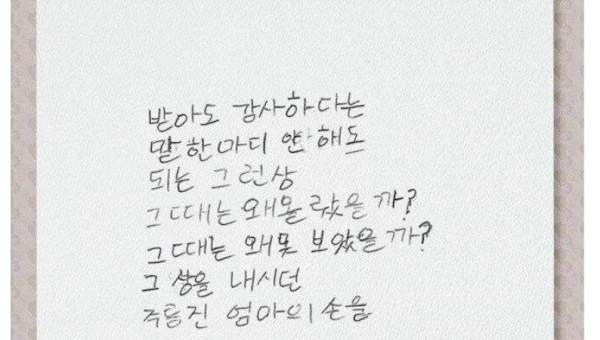 받아도 감사하다는
말 한마디 안 해도
되는 그런상
그 때는 왜몰 랐을 까?
그 때는 왜못 보았을 까?
그 상을 내시던
주름진 엄마의 손을